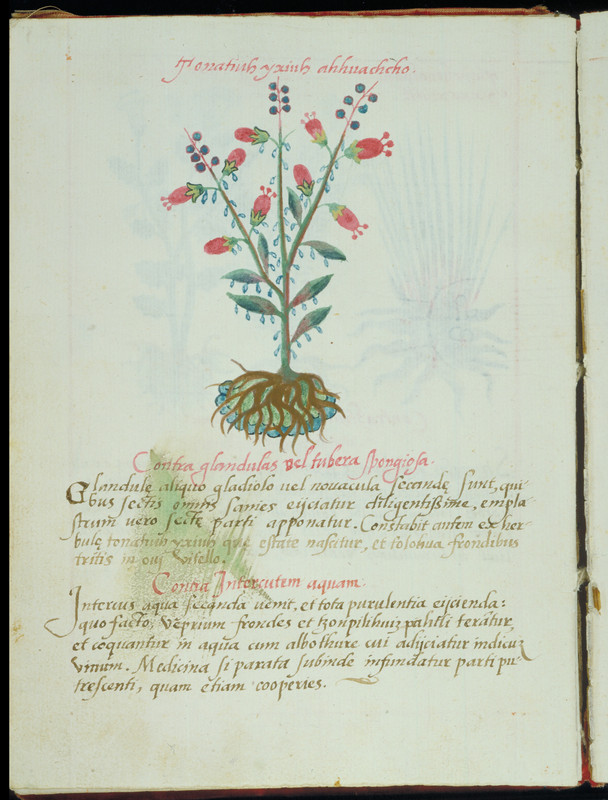 Tonatiuh yxiuh ahhuachcho.
Contra glandulas vel tubera spongiosa.
Glandule aliquo gladiolo uel nouacula secande sunt, qui
bus sectis omnis sanies eijciatur diligentissime, empla
strum uero secte parti apponatur. Constabit autem ex her
bule tonatiuh yxiuh que estate nascitur, et tolohua frondibus
tritis in oui vitello.
Contra Intercutem aquam.
Intercus aqua secanda uenit, et tota purulentia eijcienda:
quo facto, veprium frondes et tzonpilihuizpahtli teratur,
et coquantur in aqua cum albo thure cui adijciatur indicū
vinum. Medicina si parata subinde infundatur parti pu
trescenti, quam etiam cooperies.